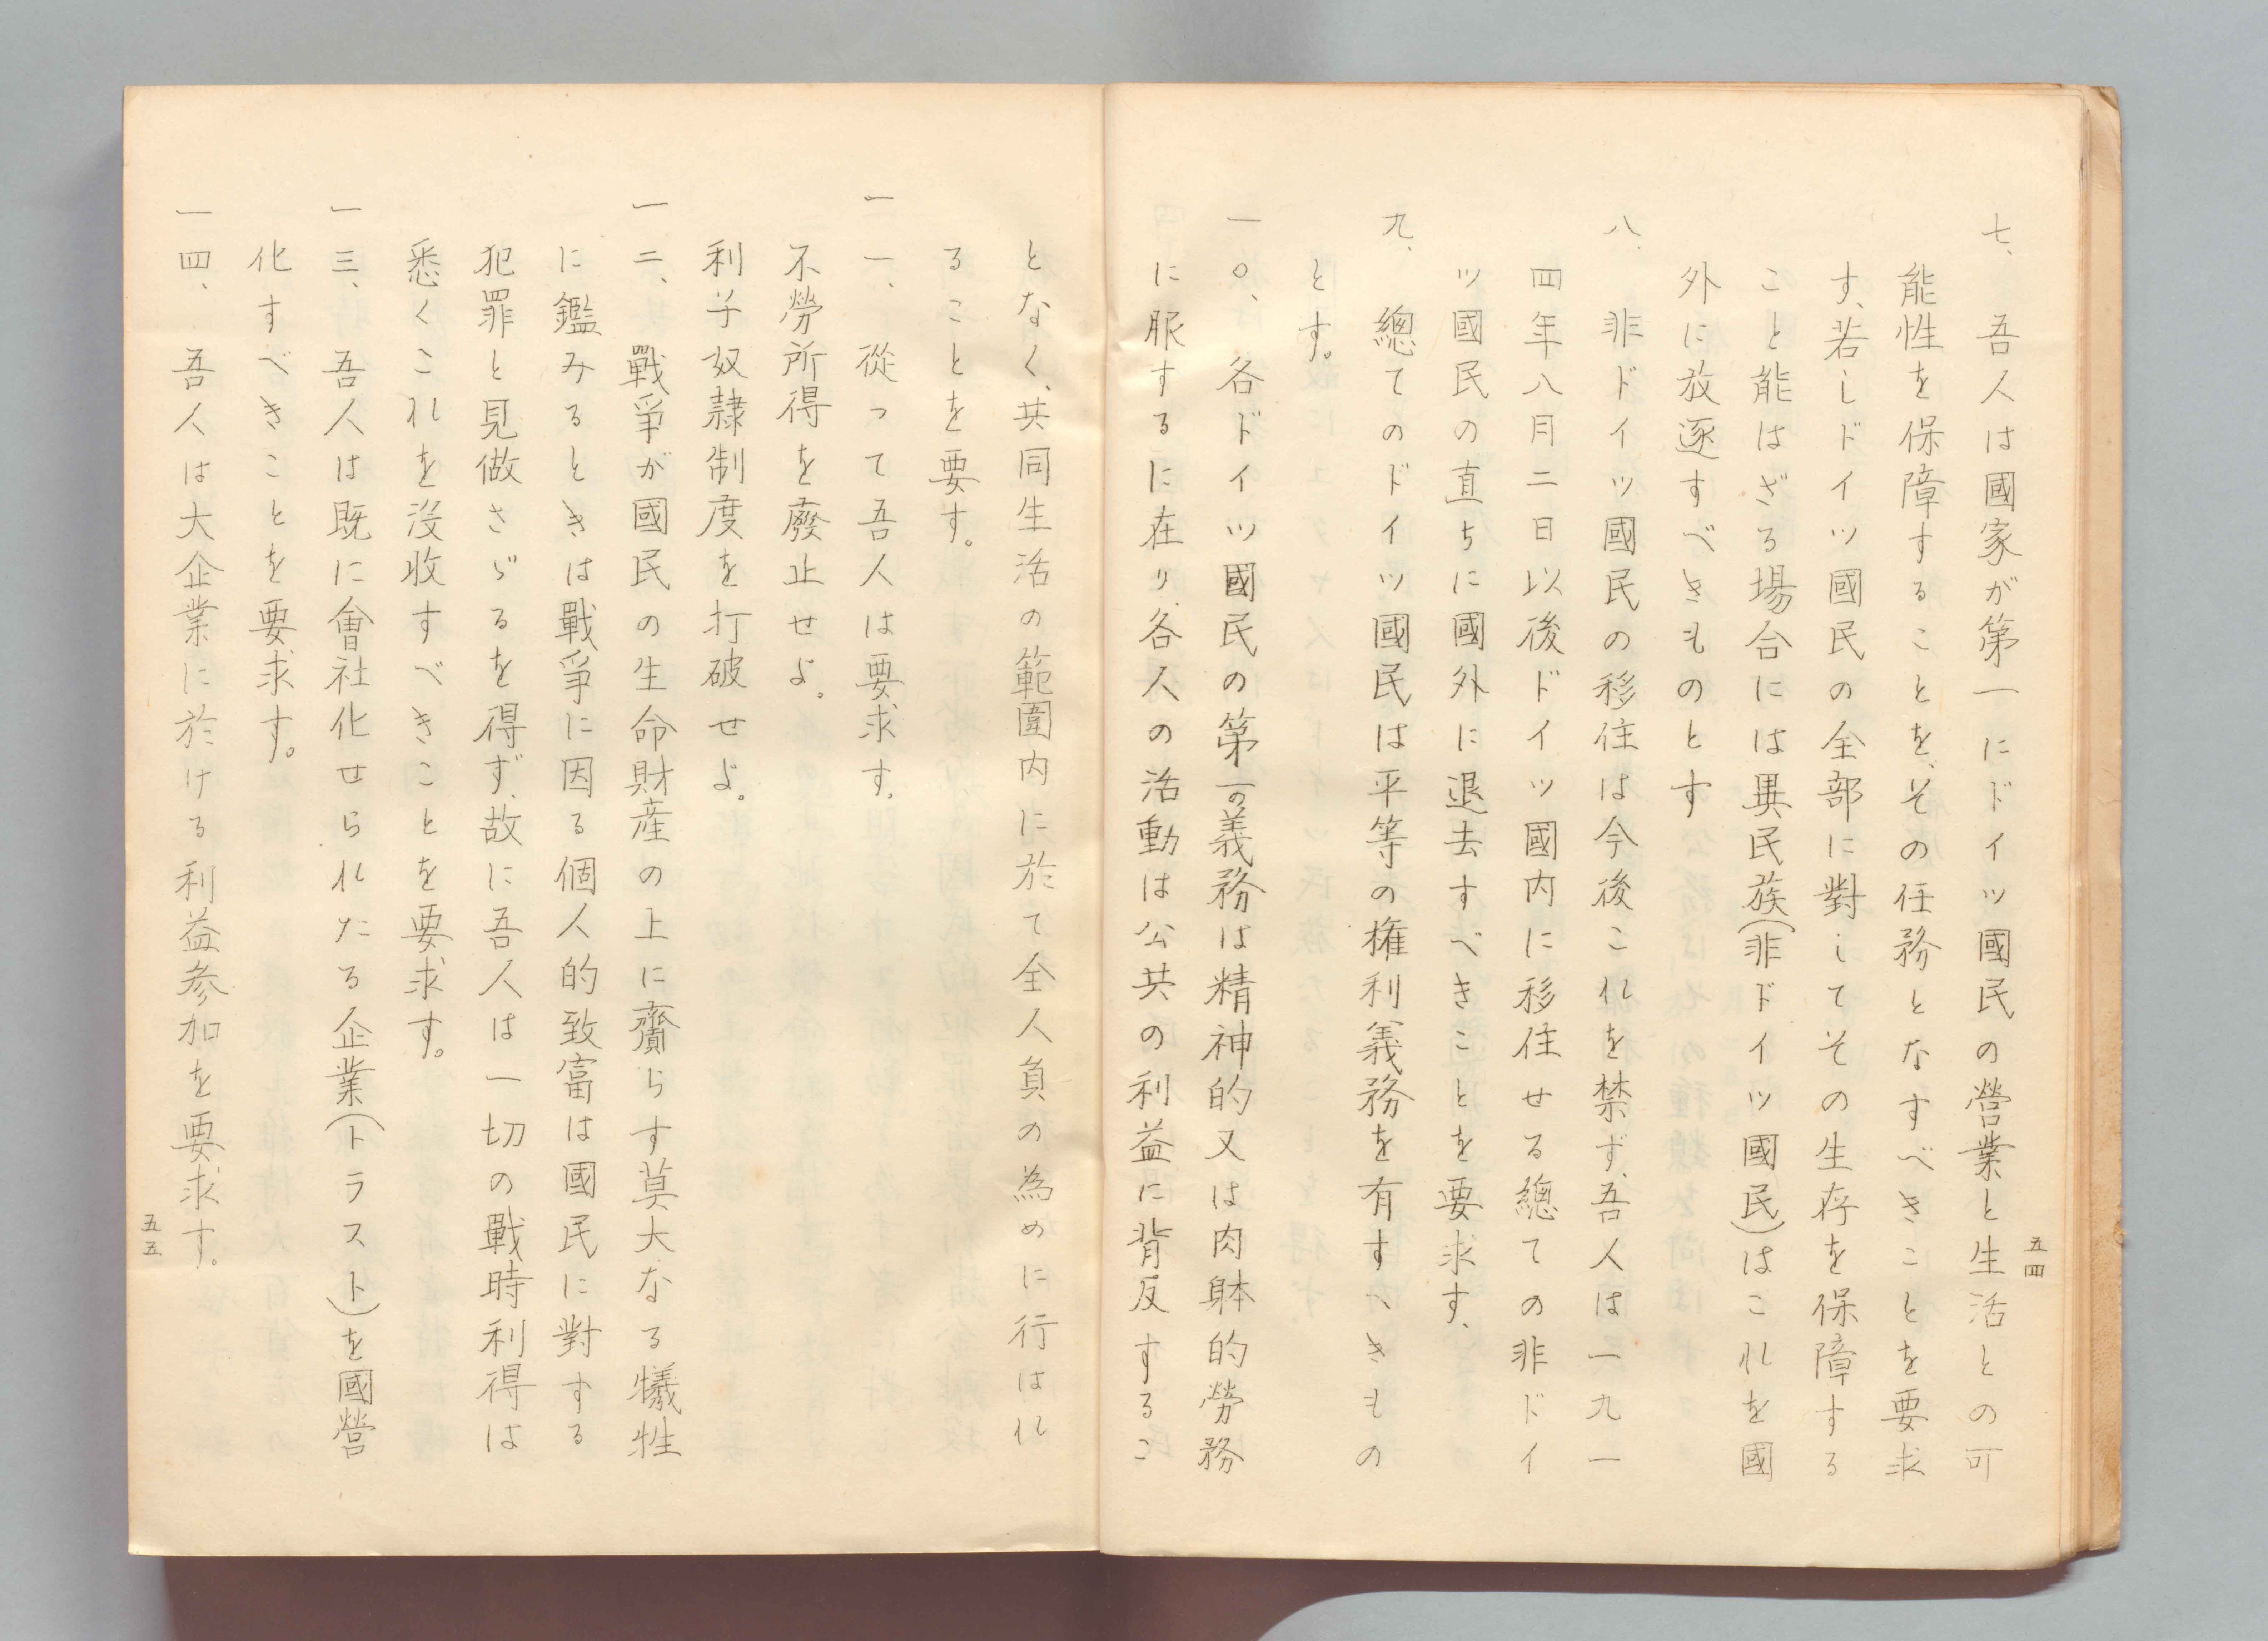 七、吾人は國家が第一にドイツ國民の營業と生活との可
能性を保障することを、その任務となすべきことを要求
す、若しドイツ國民の全部に對してその生存を保障する
こと能はざる場合には異民族(非ドイツ國民)はこれを國
外に放逐すべきものとす
八、非ドイツ國民の移住は今後これを禁ず、吾人は一九一
四年八月二日以後ドイツ國内に移住せる總ての非ドイ
ツ國民の直ちに國外に退去すべきことを要求す、
九、總てのドイツ國民は平等の権利義務を有すべきもの
とす。
一〇、各ドイツ國民の第一の義務は精神的又は肉躰的勞務
に服するに在り、各人の活動は公共の利益に背反するこ
五四
となく、共同生活の範圍内に於て全人員の為めに行はれ
ることを要す。
一一、從って吾人は要求す、
不勞所得を廢止せよ。
利子奴隷制度を打破せよ。
一二、戰爭が國民の生命財産の上に齎らす莫大なる犠牲
に鑑みるときは戰爭に因る個人的致富は國民に對する
犯罪と見做さゞるを得ず、故に吾人は一切の戰時利得は
悉くこれを没收すべきことを要求す。
一三、吾人は既に會社化せられたる企業(トラスト)を國營
化すべきことを要求す。
一四、吾人は大企業に於ける利益参加を要求す。
五五